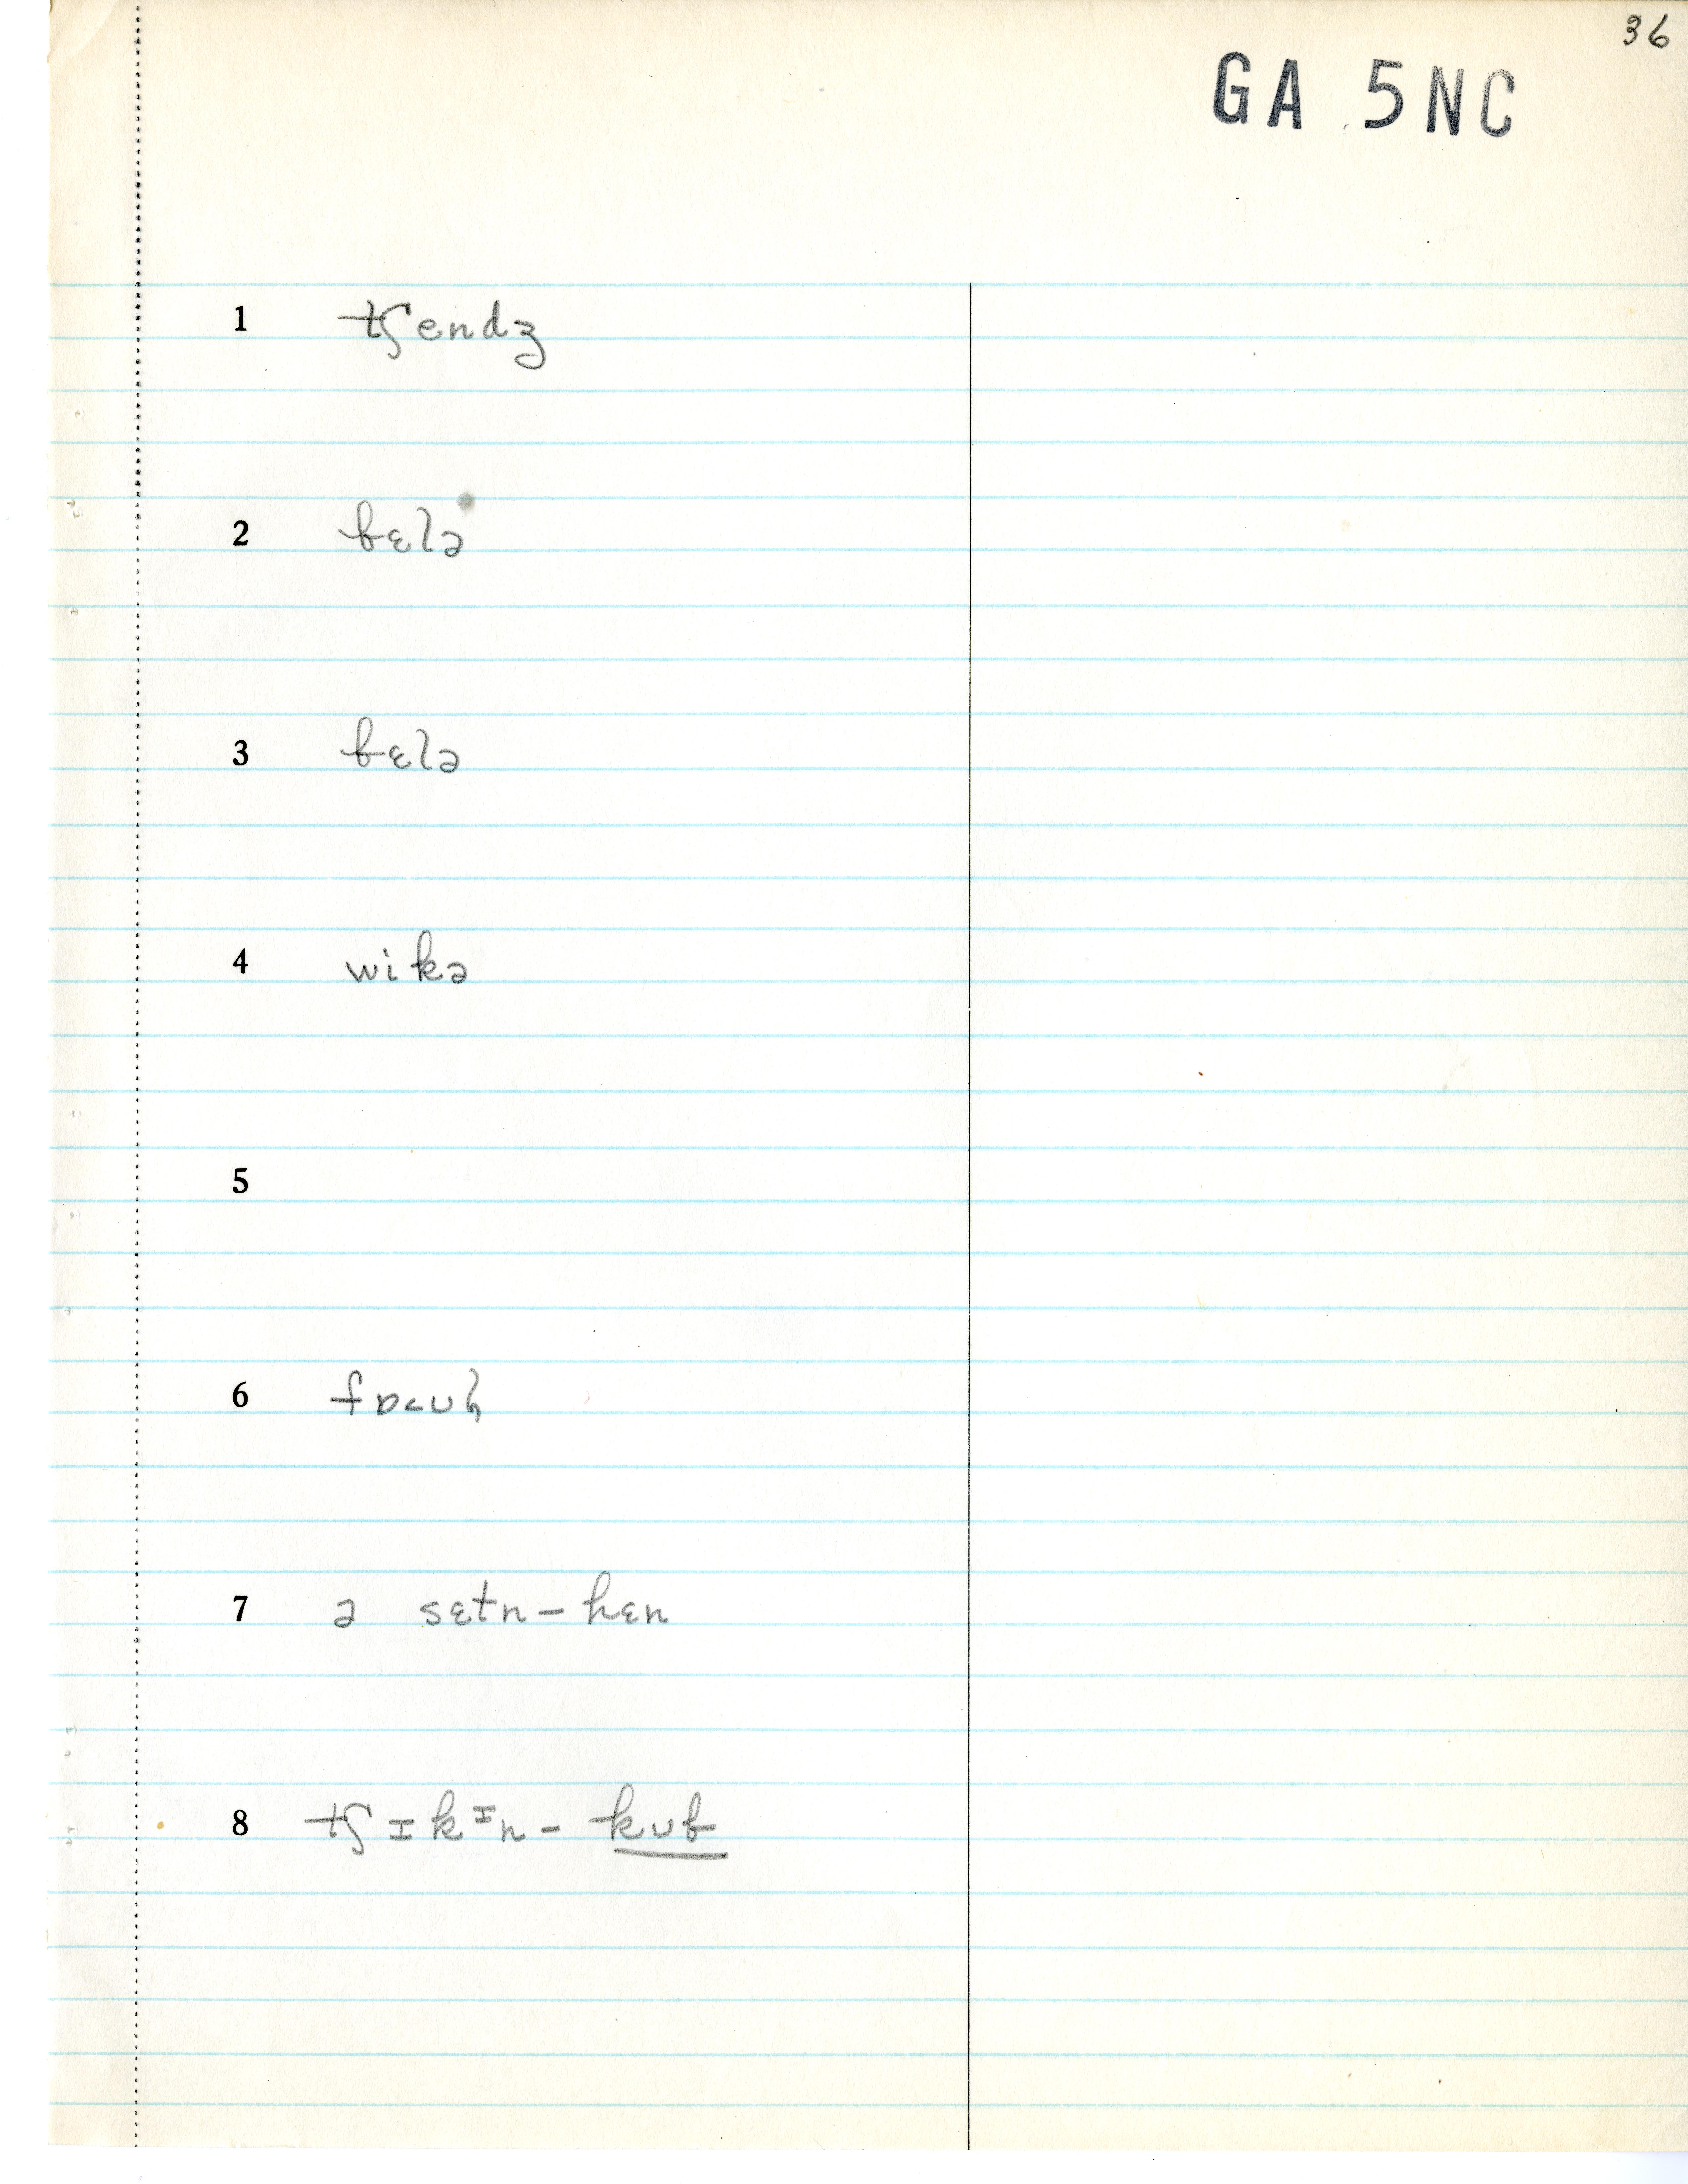 36
GA 5NC
1 tʃendʒ
2 bɛlə
3 bɛlə
4 wikə
5
6 fɒ˂ʊɫ
7 ə sɛtn-hɛn
8 tʃɪkᶦn-kʊb